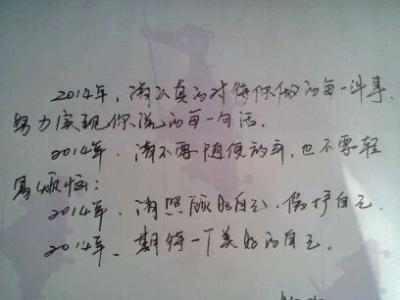 2014年，请认真的对待你做的每一件事，
努力实现你说的每一句话。
2014年，请不要随便放弃，也不要轻
易烦恼；
2014年，请照顾好自己，保护自己。
2014年，期待一下美好的自己。